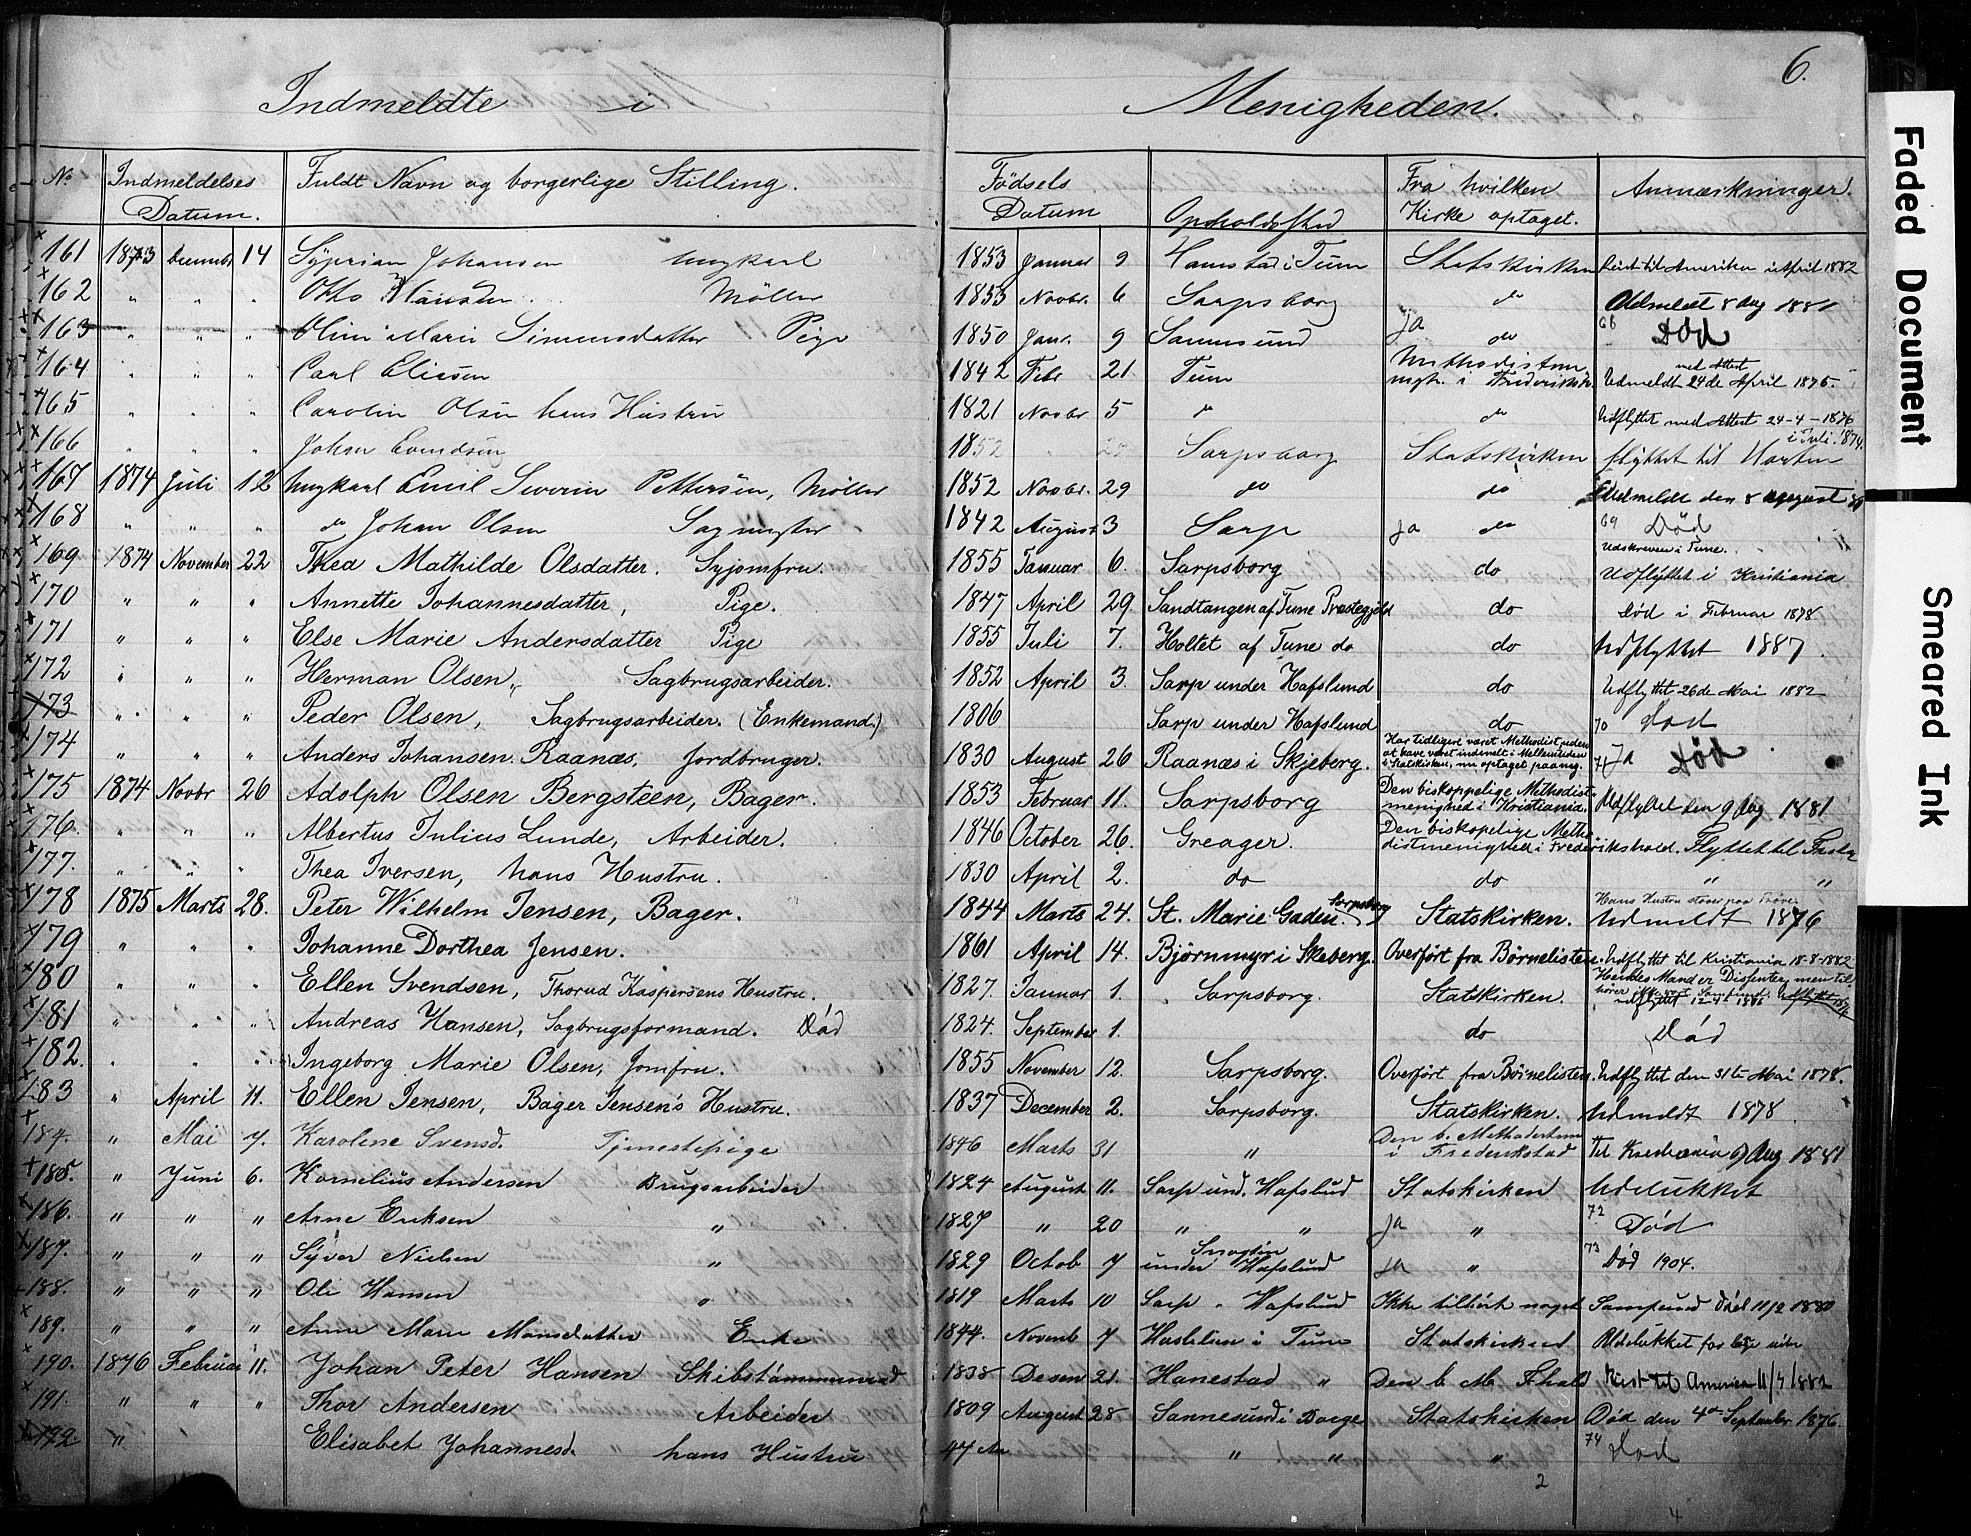 6.
Indmeldte i Menigheden.
No Indmeldelses Datum. Fuldt Navn og borgerlige Stilling. Fødsels Datum Opholdssted Fra hvilken Kirke optaget. Anmærkninger.
161 1873 Decembr 14 Syprian Johansen Ungkarl 1853 Januar 9 Hannestad i Tune Statskirken Reist til Amerika i April 1882
162 " " " Otto Hansen Möller 1853 Novbr. 6 Sarpsborg do Udmeldt 8 Aug 1881
163 " " " Oline Marie Simensdatter Pige 1850 Janr. 9 Sannesund Ja do 68 Død
164 " " " Carl Eliesen 1842 Febr 21 Tune Methodistmenigh. i Frederiksh. Udmeldt med Attest 24de April 1875
165 " " " Caroline Olsen hans Hustru 1821 Novbr 5 do do Udflyttet med Attest 24-4-1876
166 " " " Johan Evendsen 1852 Sarpsborg Statskirken flyttet til Horten i Juli 1874
167 1874 Juli 12 Ungkarl Emil Severin Pettersen, Möller 1852 Novbr. 29 do do Udmeldt den 8 august 81
168 " " " do Johan Olsen Sagmester 1842 August 3 Sarp Ja do 69 Död
169 1874 November 22 Thea Mathilde Olsdatter. Syjomfru. 1855 Januar 6. Sarpsborg do Udskreven i Tune. Udflyttet i Kristiania
170 " " " Annette Johannesdatter, Pige. 1847 April 29 Sandtangen af Tune Præstegjeld do Död i Februar 1878
171 " " " Else Marie Andersdatter Pige 1855 Juli 7. Holtet af Tune do do Udflyttet 1887.
172 " " " Herman Olsen, Sagbrugsarbeider. 1852 April 3. Sarp under Hafslund do Udflyttet 26de Mai 1882
173 " " " Peder Olsen, Sagbrugsarbeider. (Enkemand.) 1806 Sarp under Hafslund do 70 Død
174 " " " Anders Johansen Raanæs, Jordbruger. 1830 August 26 Raanæs i Skjeberg. Har tidligere været Methodist, uden at have været indmelt i Mellemtiden i Statskirken, nu optaget paany. 71 Ja Død
175 1874 Novbr 26 Adolph Olsen Bergsteen, Bager. 1853 Februar 11. Sarpsborg Den biskoppelige Methodistmenighed i Kristiania. Udflyttet den 9 Aug 1881
176. " " " Albertus Julius Lunde, Arbeider. 1846 October 26. Greager. Den biskopelige Methodistmenighed i Frederikshald. Flyttet til
177. " " " Thea Iversen, hans Hustru. 1830 April 2. do do " "
178 1875 Marts 28. Peter Wilhelm Jensen, Bager. 1844 Marts 24. St. Marie Gaden. Sarpsborg Statskirken. Hans Hustru staar paa Prøve. Udmeldt 1876
179 " " " Johanne Dorthea Jensen. 1861 April 14. Bjørnmyr i Skeberg. Overført fra Børnelisten. Udflyttet til Kristiania 18-8-1882
180 " " " Ellen Svendsen, Thorud Kaspersens Hustru. 1827. Januar 1. Sarpsborg. Statskirken. Hendes Mand er Disenter, men tilhører ikke udflyttet 1886
181 " " " Andreas Hansen, Sagbrugsformand. Död 1824. September 1. do Död
182. " " " Ingeborg Marie Olsen, Jomfru. 1855 November 12. Sarpsborg. Overført fra Børnelisten. Udflyttet den 31te Mai 1878.
183 " April 11. Ellen Jensen, Bager Jensen's Hustru. 1837 December 2. Sarpsborg. Statskirken. Udmeldt 1878.
184. " Mai 7. Karolene Svensd. Tjenestepige 1846 Marts 31 " Den b. Methodistmen i Frederikstad Til Kristiania 9 Aug 1881
185. " Juni 6. Kornelius Andersen Brugsarbeider 1824 August 11. Sarp und. Hafslud Statskirken Udelukket
186. " " " Arne Eriksen " 1827 " 20 " " Ja " 72 Død
187. " " " Syver Nielsen " 1829 Octob 7 under Hafslund Ja " 73 Død 1904.
188. " " " Ole Hansen " 1819 Marts 10 Sarp " Hafslund Ikke tilhört noget Samfund Död 11/2 1880
189. " " " Anne Marie Monsdatter Enke 1844. Novemb 7 Haslelien i Tune Statskirken Udelukket for
190. 1876 Februar 11. Johan Peter Hansen Skibstømmermand 1838 Desem 21. Hanestad " Den b. M. Fhald Reist til America 11/4 1882
191. " " " Thor Andersen Arbeider 1809 August 28 Sannesund i Borge Statskirken Død den 4de September 1876.
192 " Elisabet Johannesd. " hans Hustru 47 Aar " " " 74 Død
2
4
Faded Document
Smeared Ink